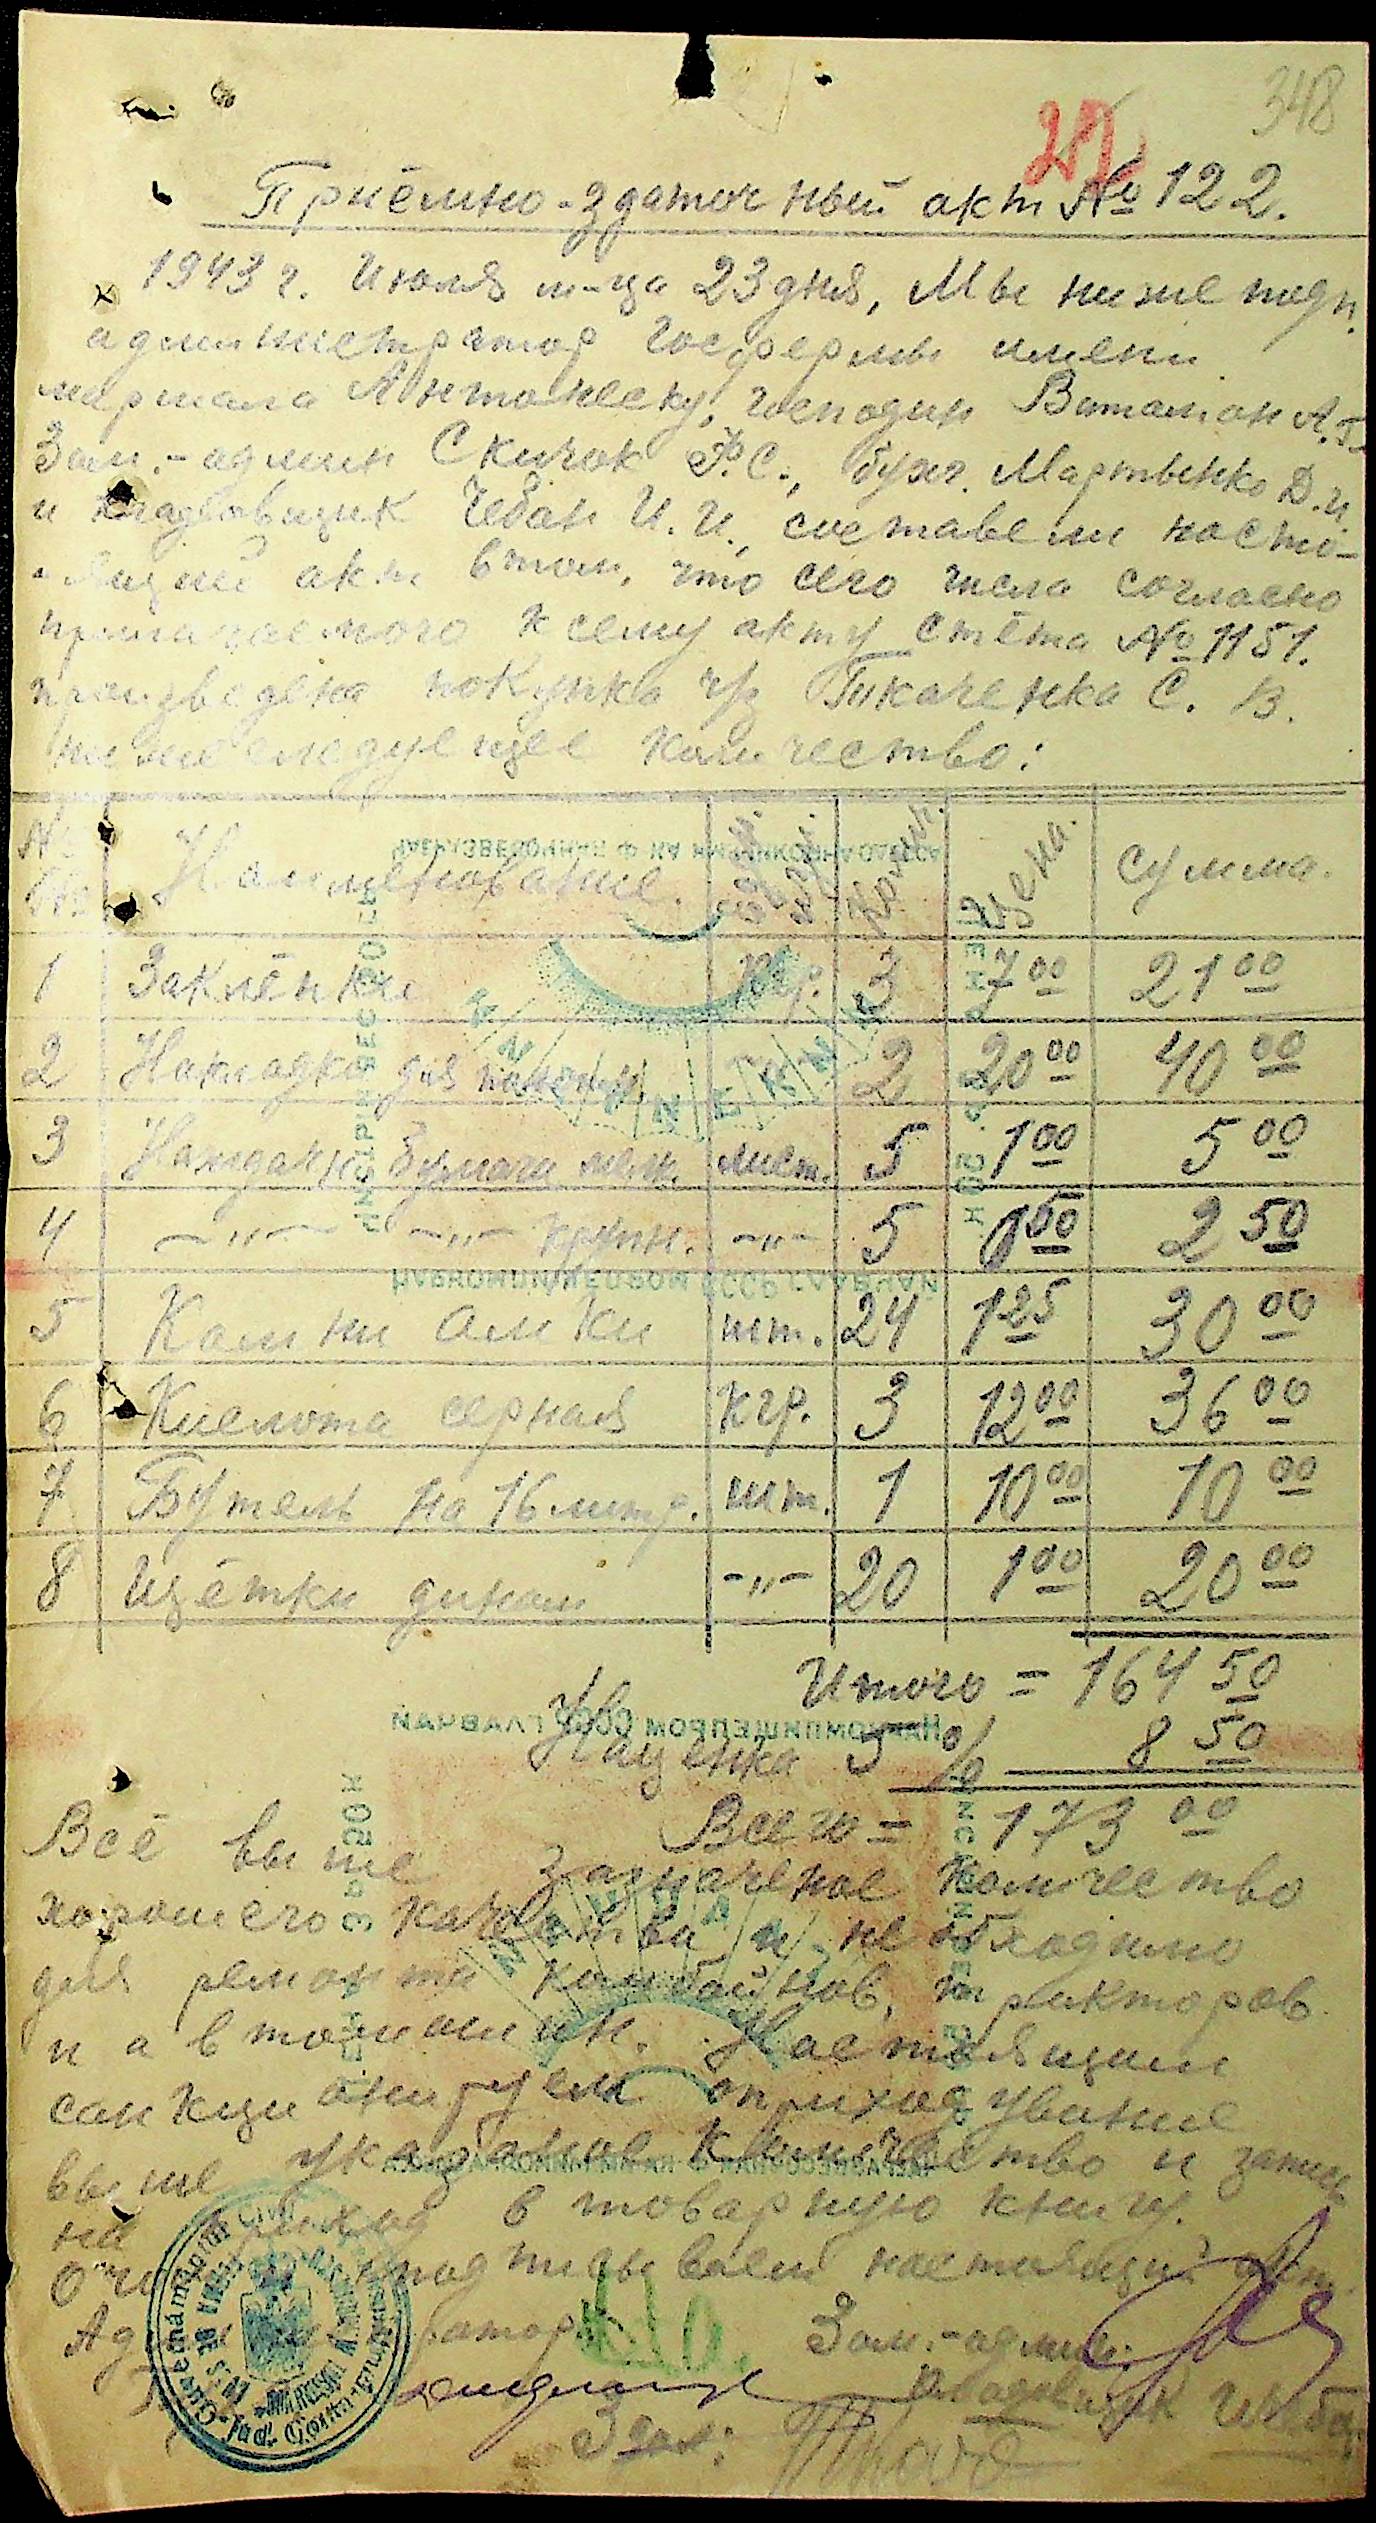 348
27
Приёмно-здаточный акт № 122.
1943 г. Июля м-ца 23 дня, Мы ниже подп.
администратор Госфермы имени
маршала Антонеску, господин Витаман А.Г.
Зам.-админ Скичок Ф.С., бухг. Мартыненко Д.И.
и кладовщик Чебан И.И., составели насто-
-ящий акт в том, что сего числа согласно
прилагаемого к сему акту счёта № 1151.
произведена покупка ч/з Ткаченка С. В.
нижеследующее количество:
№ Наименование. Колич. Цена. сумма.
1 Заклёпки Кгр. 3 7 00 21 00
2 Накладка для 2 20 00 40 00
3 Наждакн бумага мелк. лист. 5 1 00 5 00
4 -"- -"- крупн. -"- 5 2 50
5 Камни шт. 24 1 25 30 00
6 Кислота серная кгр. 3 12 00 36 00
7 Бутель на 16 литр. шт. 1 10 00 10 00
8 Щётки динам -"- 20 1 00 20 00
Итого = 164 50
Наценка 5 % 8 50
Всего = 173 00
Всё выше значеное количество
хорошего качества и необходимо
для ремонта комбайнов, тракторов
и автомашин. Настоящим
санкционируем оприходувание
выше указаное количество и запись
на приход в товарную книгу.
О чём и подписываем настоящий акт.
Администратор Зам.-админ.
Кладовщик
Здал: